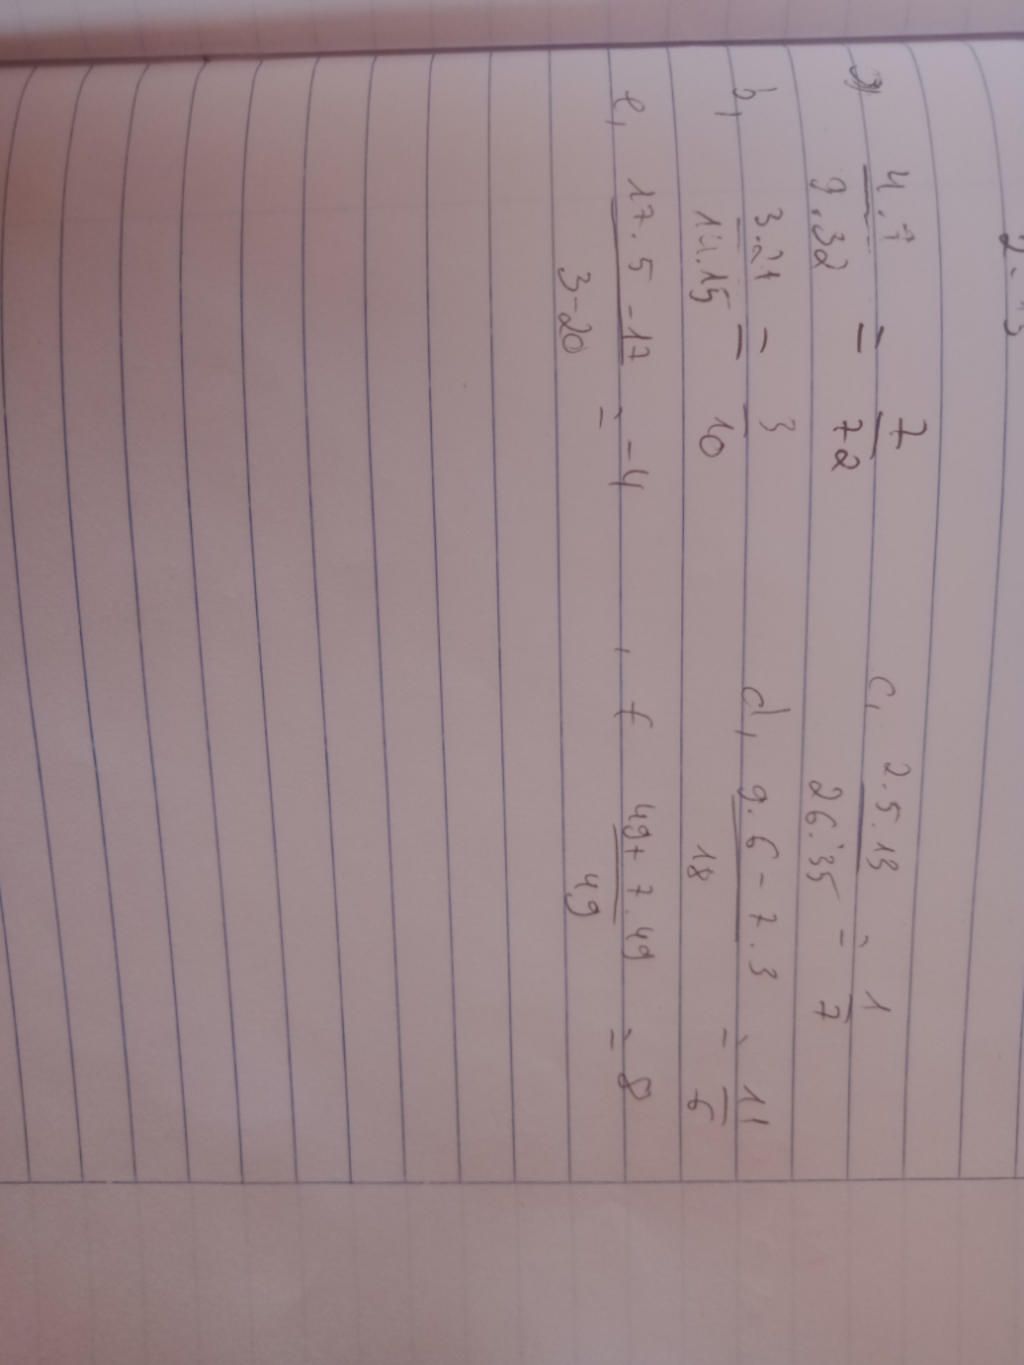 a) 4.7 = 7
9.32 72
c, 2.5.13 = 1
26.35 7
b, 3.21 = 3
14.15 10
d, 9.6-7.3 = 11
18 6
e, 17.5-17 = -4
3-20
, f 49+7.49 = 8
49